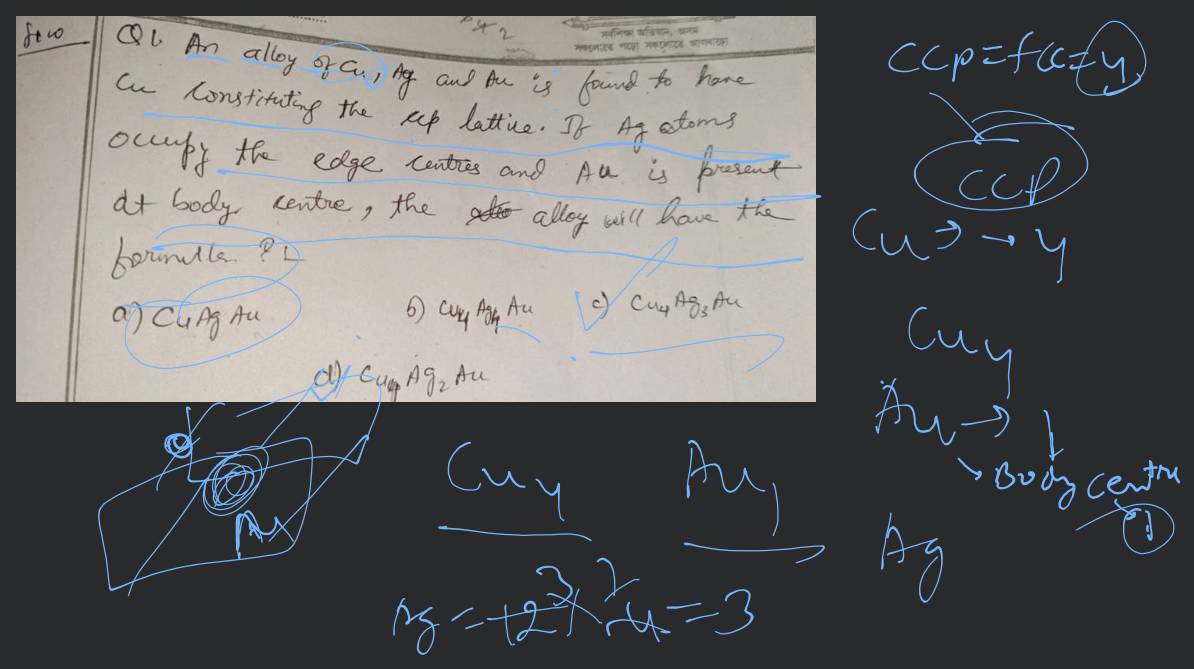 Q1. An alloy of Cu, Ag and Au is found to have
Cu constituting the ccp lattice. If Ag atoms
occupy the edge centres and Au is present
at body centre, the alloy will have the
formula ?
a) Cu4AgAu
b) Cu4Ag4Au
c) Cu4Ag3Au
d) Cu4Ag2Au
সৰ্বশিক্ষা অভিযান, অসম
ccp=fcc=4
ccp
Cu → → 4
Cu4
Au →
→ Body centre
1
Ag
Au
Cu4
Au1
Ag = 12 × 1/4 = 3